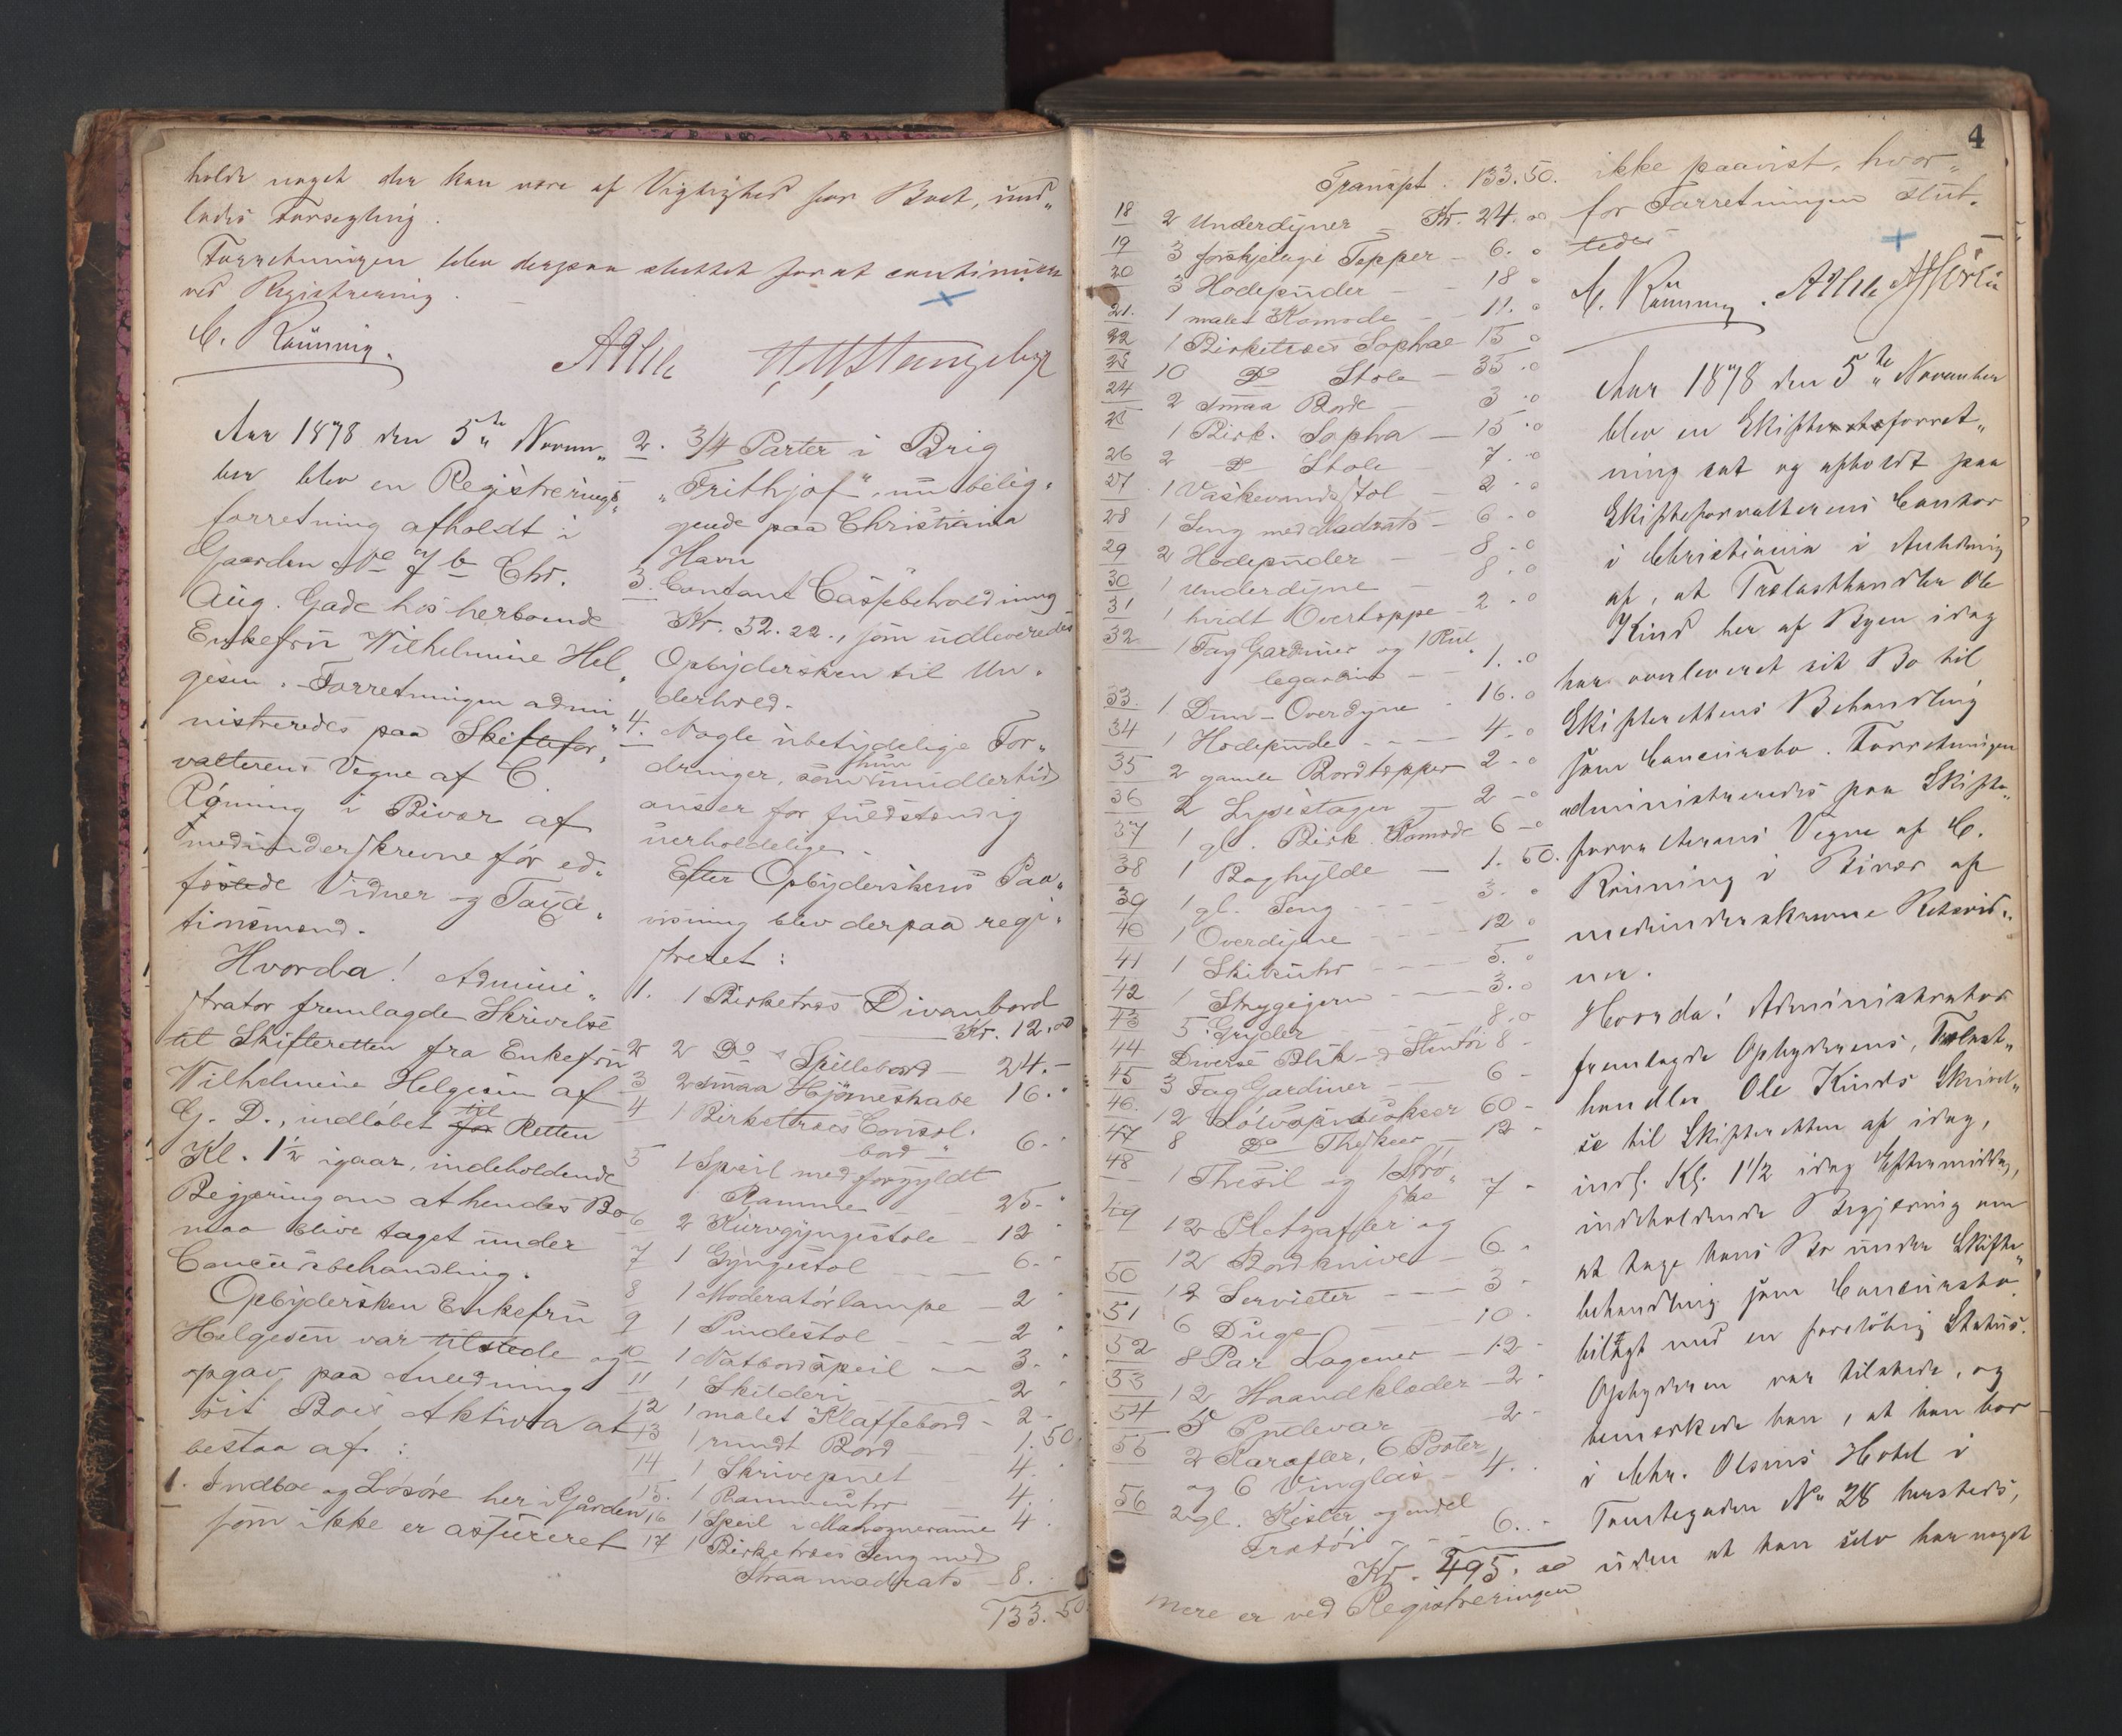 holde noget der kan være af Vigtighed for Boet, und„
lodes Forsegling.
Forretningen blev derpaa sluttet for at continuere
ved Registrering.
C. Rönning.
Aar 1878 den 5te Novem„
ber blev en Registrerings„
forretning afholdt i
Gaarden No 7 b Chr.
Aug. Gade hos herboende
Enkefru Wilhelmine Hel„
gesen. Forretningen admi„
nistreredes paa Skiftefor„
valterens Vegne af C.
Rönning i Bivær af
medunderskrevne för ed„
fæstede Vidner og Taxa„
tionsmænd.
Hvorda! Admini„
strator fremlagde Skrivelse
til Skifteretten fra Enkefru
Wilhelmine Helgesen af
G. D., indløbet til for Retten
Kl. 1½ igaar, indeholdende
Begjæring om at hendes Bo
maa blive taget under
Concursbehandling.
Opbydersken Enkefru
Helgesen var tilstede og
opgav paa Anledning
sit Boes Aktiva at
bestaa af:
1. Indboe og Løsøre her i Gården
som ikke er assureret
2. 3/4 Parter i Brig
„Frithjof“, nu belig„
gende paa Christiania
Havn
3. Contant Cassebeholdning
Kr. 52.22., som udleveredes
Opbydersken til Un„
derhold.
4. Nogle ubetydelige For„
dringer, som hun imidlertid
anser for fuldstændig
uerholdelige.
Efter Opbyderskens Paa„
visning blev derpaa regi„
streret:
1. 1 Birketræs Divanbord
Kr. 12.00
2 2 Do Spillebord — 24.-
3 2 smaa Hjørneskabe 16.
4 1 Birketræes Consol„
bord 6.
5 1 Speil med forgyldt
Ramme — 25.
6 2 Kurvgyngestole — 12
7 1 Gyngestol — 6.
8 1 Moderatörlampe — 2
9 1 Pindestol — 2
10 1 Natbordspeil — 3.
11 1 Skilderi — 2
12 1 malet Klaffebord - 2
13 1 rundt Bord 1.50
14 1 Skrivepult 4.
15. 1 Rammeuhr 4.
16 1 Speil i Mahogneramme 4.
17 1 Birketræes Seng med
Straamadrats — 8.
133.50
4
Transpt. 133.50.
18 2 Underdyner — Kr. 24.00
19 3 forskjelige Tepper — 6.0
20 3 Hodepuder — 18 0
21. 1 malet Komode — 11.0
22 1 Birketræes Sophae 15 0
23 10 Do Stole — 35.0
24 2 smaa Borde — 3.0
25 1 Birk. Sopha — 15.0
26 2 Do Stole 7.0
27 1 Vaskevandsstol — 2.0
28 1 Seng med Madrats — 6.0
29 2 Hodepuder — 8.0
30 1 Underdyne — 8.0
31 1 hvidt Overteppe — 2.0
32 1 Fag Gardiner og 1 Rul„
legardin — 1.0
33. 1 Dun-Overdyne . 16.0
34 1 Hodepude — 4.0
35 2 gamle Bordtepper 2-0
36 2 Lysestager — 2-0
37 1 gl. Birk. Komode 6-0
38 1 Boghylde — 1.50.
39 1 gl. Seng — 3.0
40 1 Overdyne — 12 0
41 1 Skiveuhr — 5.0
42 1 Strygejern — 3.0
43 5 Gryder 8.0
44 Diverse Blik- og Stentöi 8 -
45 3 Fag Gardiner — 6 -
46. 12 Sölvspiseskeer 60 -
47 8 Do Theskeer — 12 -
48 1 Thesil og 1 Strö„
ske 7 -
49 12 Pletgafler og
12 Bordknive — 6.
50 12 Servietter — 3 -
51 6 Duge — 10 -
52 8 Par Lagener — 12 -
53 12 Haandklæder — 2 -
54 5 Pudevar — 2 -
55 2 Karafler, 6 Porter
og 6 Vinglas — 4.
56 2 gl. Kister og endel
Trætöi — 6..
Kr. 495.00
Mere er ved Registreringen
ikke paavist, hvor„
for Forretningen slut„
tedes
C. Rönning.
Aar 1878 den 5te November
blev en Skifterets forret„
ning sat og afholdt paa
Skifteforvalterens Contor
i Christiania i Anledning
af, at Trælasthandler Ole
Kind her af Byen idag
har overleveret sit Bo til
Skifterettens Behandling
som Concursbo. Forretningen
administreredes paa Skifte„
forvalterens Vegne af C.
Rönning i Bivær af
medunderskrevne Retsvid„
ner.
Hvorda! Administrator
fremlagde Opbyderens, Trælast„
handler Ole Kinds Skrivel„
se til Skifteretten af idag,
indl. Kl. 1 1/2 idag Eftermiddag,
indeholdende Begjæring om
at tage hans Bo under Skifte„
behandling som Concursbo
bilagt med en foreløbig Status.
Opbyderen var tilstede, og
bemerkede han, at han bor
i Chr. Olsens Hotel i
Tomtegaden No 28 hersteds,
uden at han selv har noget